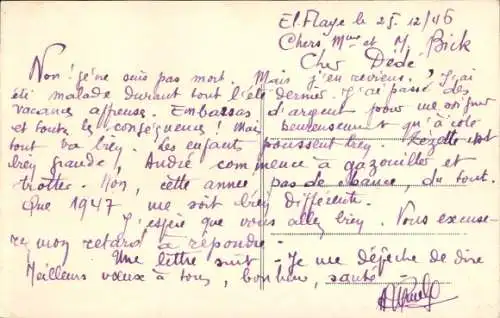 El-Flaye le 25. 12/46
Chers, Mme et M, Bick
Cher Dédé
Non! je ne suis pas mort. Mais j'en reviens! J'ai
été malade durant tout l'été dernier. J'ai passé des
vacances affreuses. Embarras d'argent pour me soigner
et toutes les conséquences! Mais heureusement qu'à côté
tout va bien. Les enfants poussent bien. Zézette est
bien grande, André commence à gazouiller et
trotter. Non, cette année pas de chance, du tout.
Que 1947 me soit bien différente.
J'espère que vous allez bien. Vous excuse-
rez mon retard à répondre.
Une lettre suit - Je me dépêche de dire
Meilleurs vœux à tous, bonheur, santé